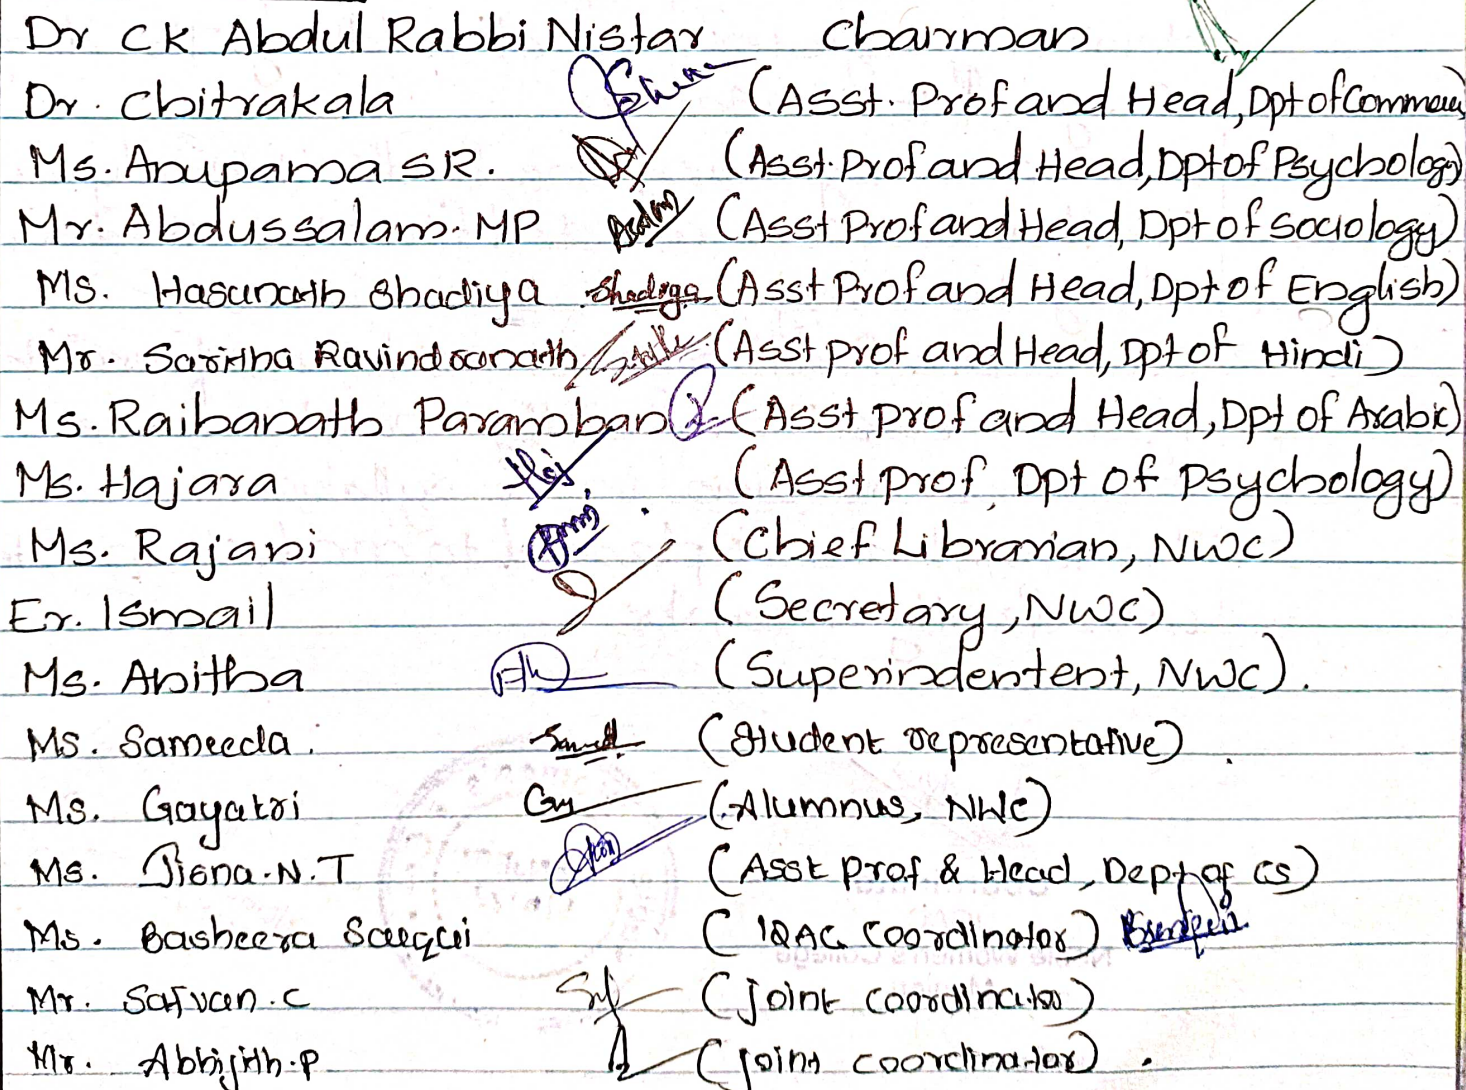 Dr CK Abdul Rabbi Nistar Chairman
Dr. Chitrakala (Asst. Prof and Head, Dpt of Commerce)
Ms. Anupama SR. (Asst. Prof and Head, Dpt of Psychology)
Mr. Abdussalam. MP (Asst Prof and Head, Dpt of Sociology)
Ms. Hasanath Shadiya Shadiya (Asst Prof and Head, Dpt of English)
Mr. Saritha Ravindranath (Asst prof and Head, Dpt of Hindi)
Ms. Raihanath Paramban (Asst prof and Head, Dpt of Arabic)
Ms. Hajara Haj (Asst prof, Dpt of Psychology)
Ms. Rajani (Chief Librarian, NWC)
Er. Ismail (Secretary, NWC)
Ms. Anitha (Superindentent, NWC).
Ms. Sameeda. (Student representative)
Ms. Gayatri Gay (Alumnus, NWC)
Ms. Jisna. N. T (Asst prof & Head, Dept of CS)
Ms. Basheera (IQAC Coordinator)
Mr. Safvan. C (Joint Coordinator)
Mr. Abhijith. P (Joint Coordinator).